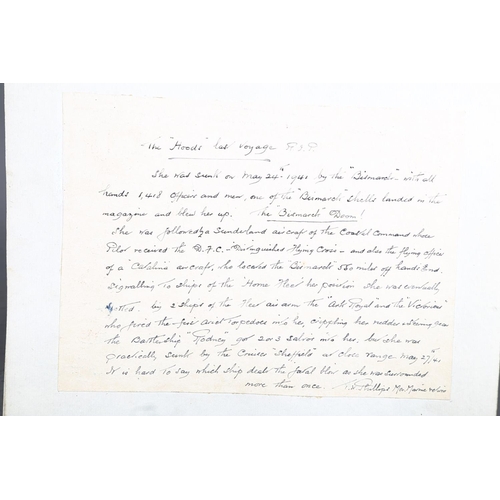 The "Hoods" last voyage R.I.P.
She was sunk on May 24th 1941 by the "Bismarck" with all
hands 1,418 officers and men, one of the "Bismarck" shells landed in the
magazine and blew her up. The "Bismarck" Doom!
She was followed by a Sunderland aircraft of the Coastal Command whose
Pilot received the D.F.C. - Distinguished Flying Cross - and also the flying officer
of a "Catalina" aircraft, who located the "Bismarck" 550 miles off Lands End.
Signalling to ships of the "Home Fleet" her position she was eventually
by 2 ships of the Fleet air arm the "Ark Royal and the Victorious"
who, fired the first Ariel Torpedoes into her, crippling her rudder & steering gear
the Battleship "Rodney" got 2 or 3 salvos into her, but she was
practically sunk by the Cruiser "Sheffield" at close range May 27th 41
It is hard to say which ship dealt the fatal blow as she was surrounded
more than once. Phillips